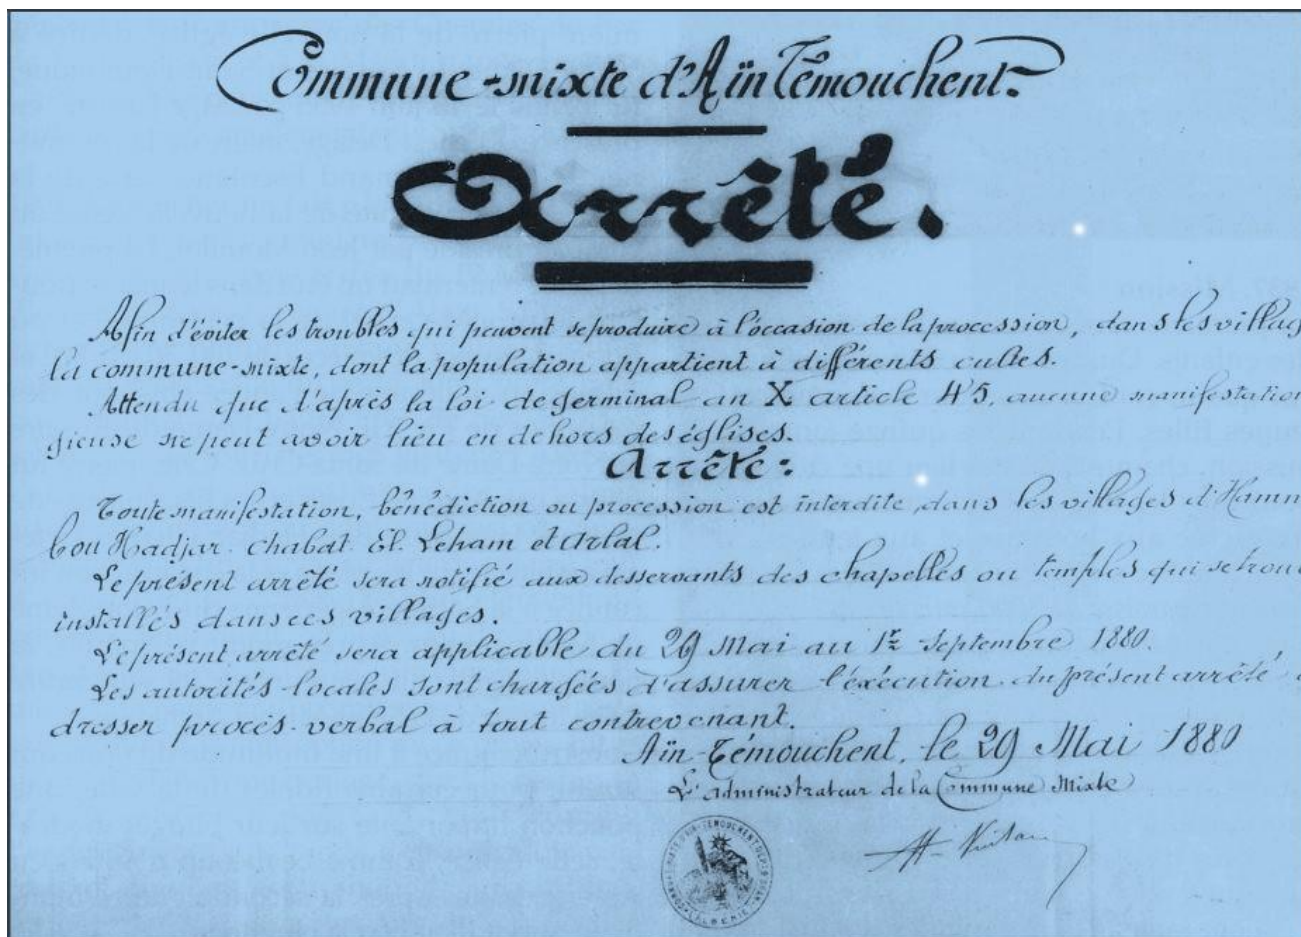 Commune-mixte d'Aïn Témouchent.
Arrêté.
Afin d'éviter les troubles qui peuvent se produire à l'occasion de la procession, dans les villag
la commune-mixte, dont la population appartient à différents cultes.
Attendu que d'après la loi de germinal an X article 45, aucune manifestation
gieuse ne peut avoir lieu en dehors des églises.
Arrêté:
Toute manifestation, bénédiction ou procession est interdite, dans les villages d'Hamm
bou Hadjar. Chabat. El. Leham et Arlal.
Le présent arrêté sera notifié aux desservants des chapelles ou temples qui se trou
installés dans ces villages.
Le présent arrêté sera applicable du 29 Mai au 1er Septembre 1880.
Les autorités locales sont chargées d'assurer l'éxécution du présent arrêté
dresser procès-verbal à tout contrevenant.
Aïn-Témouchent, le 29 Mai 1880
L'administrateur de la Commune Mixte